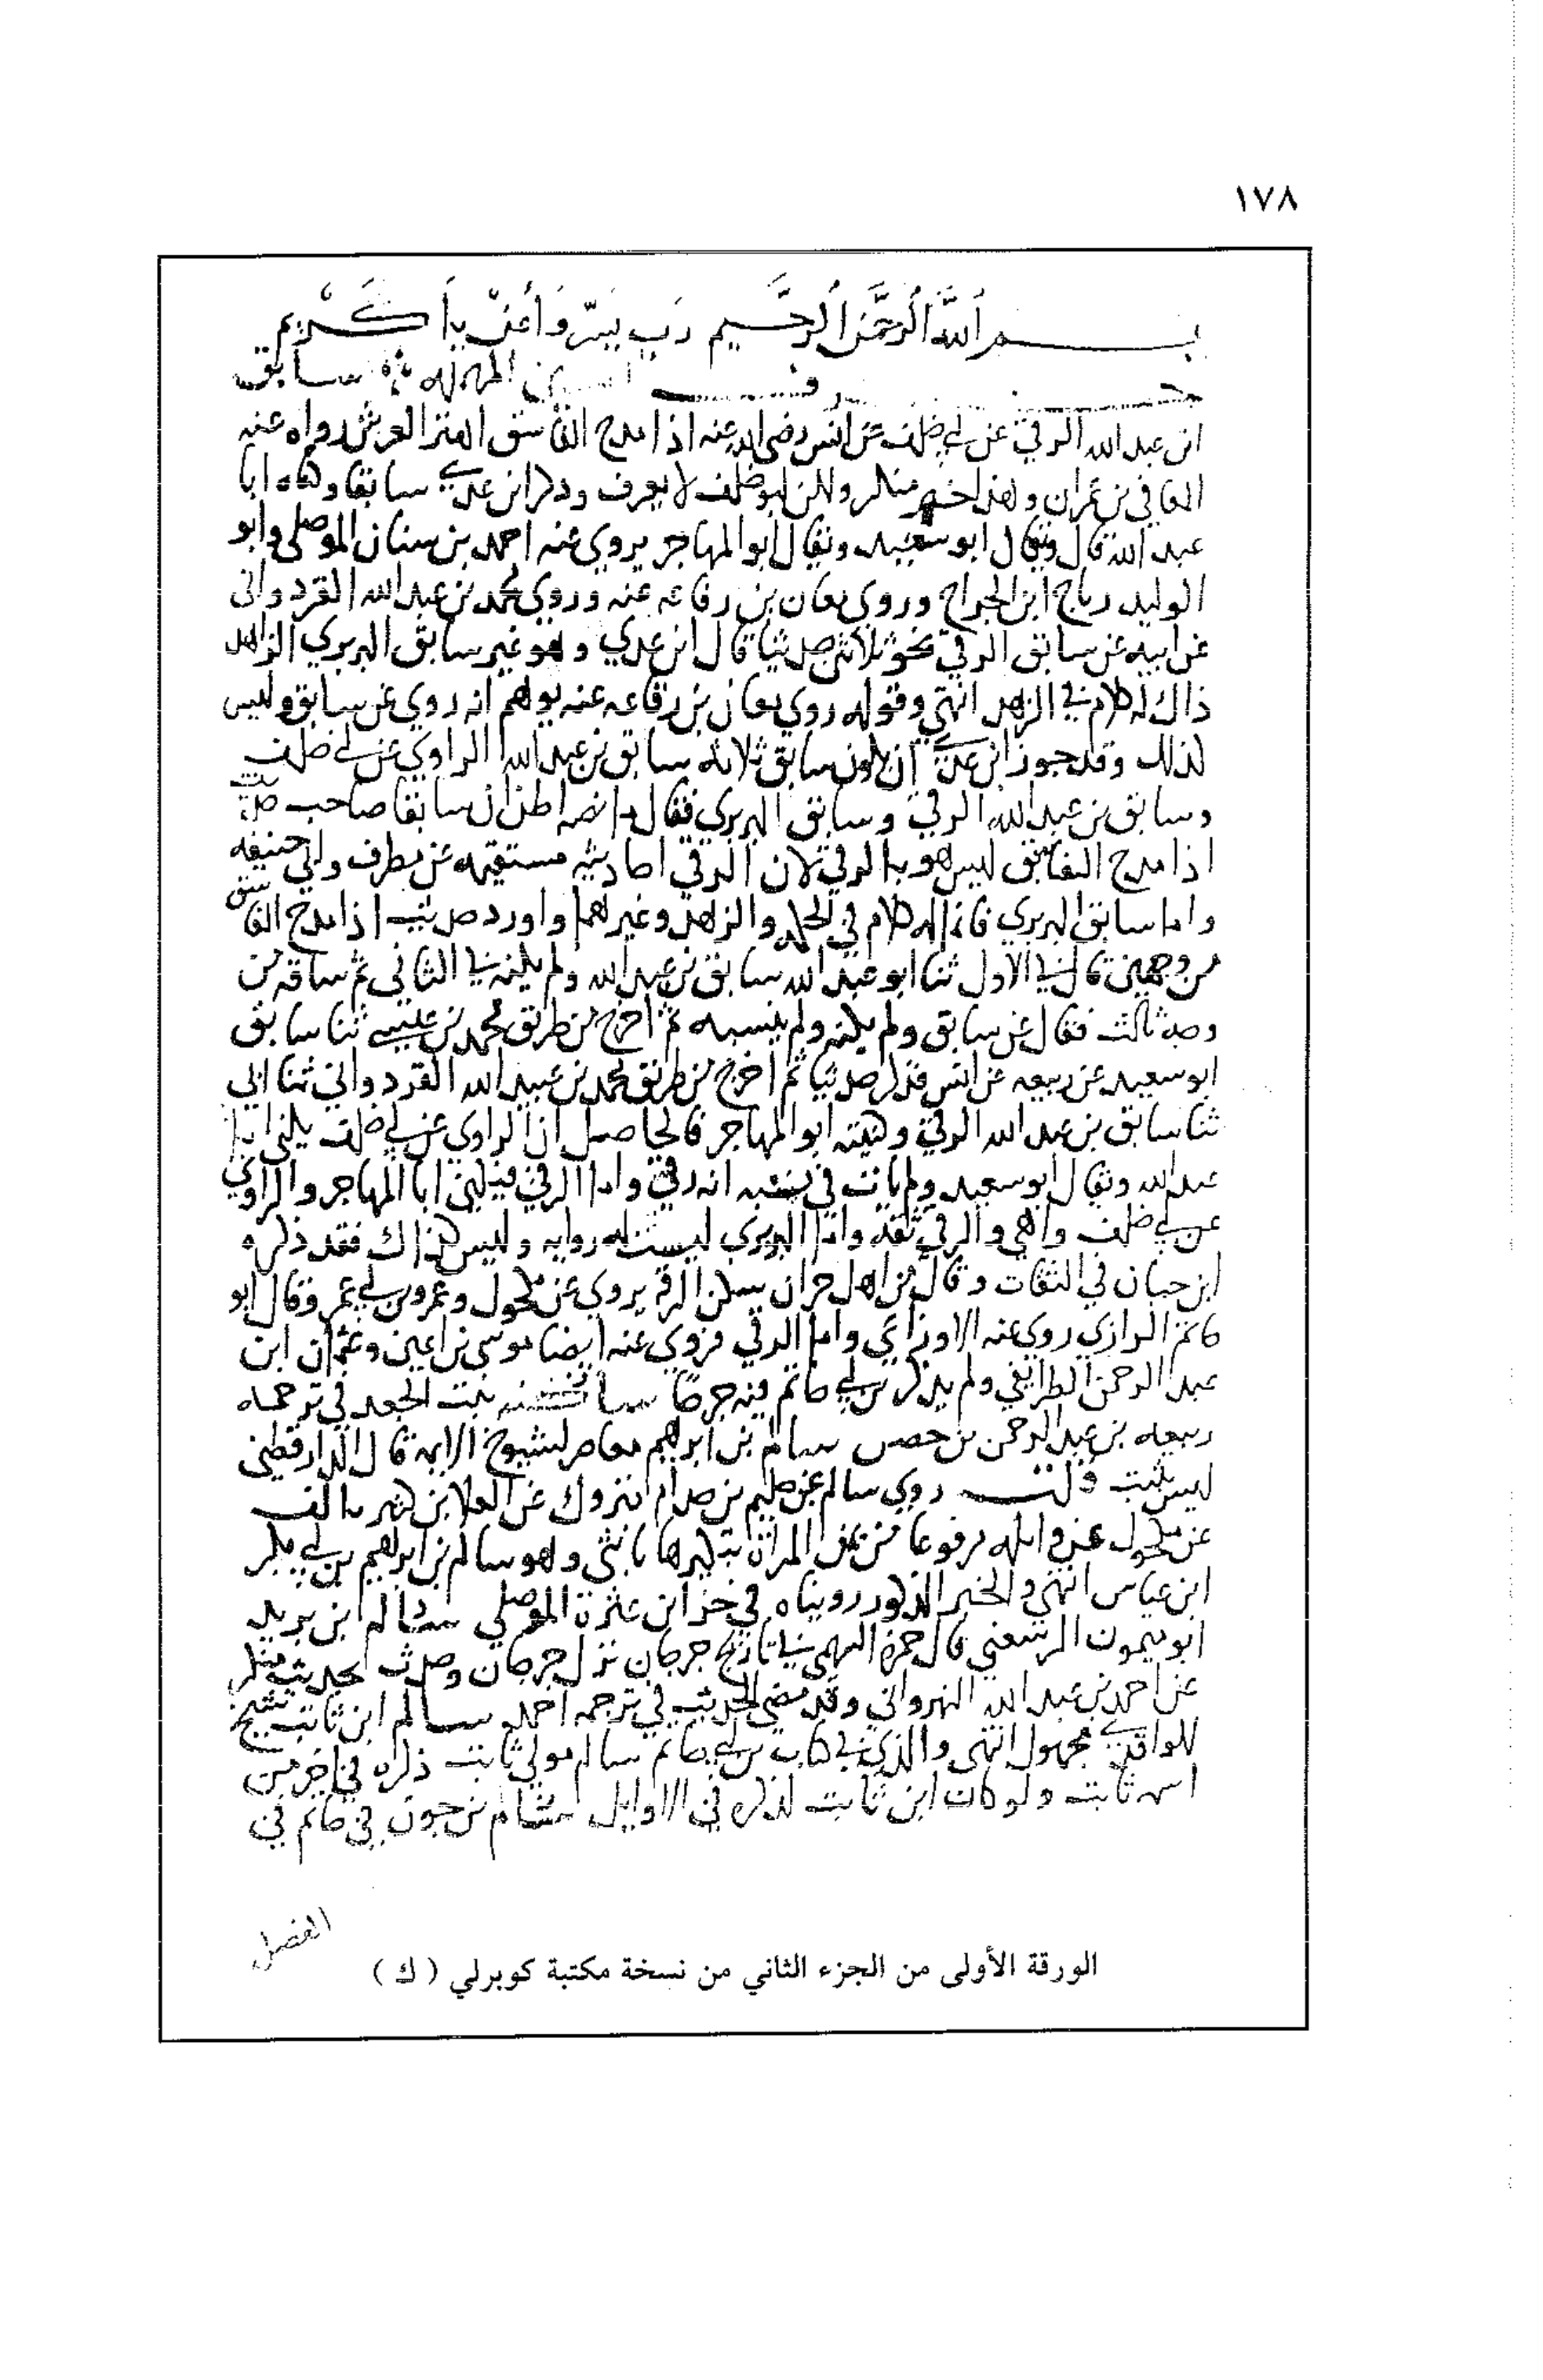 ١٧٨
بسم الله الرحمن الرحيم رب يسر وأعن يا كريم
حرف السين المهملة سابق
ابن عبد الله الرقي عن ابي خلف عن انس رضي الله عنه اذا مدح الفاسق اهتز العرش رواه عنه
المعافى بن عمران وهذا خبر منكر ولكن ابو خلف لا يعرف وذكر ابن عدي سابقا وكناه ابا
عبد الله قال ويقال ابو سعيد ويقال ابو المهاجر يروي عنه احمد بن سنان الموصلي وابو
الوليد رباح ابن الجراح وروى معان بن رفاعه عنه وروي محمد بن عبيد الله القرد واني
عن ابيه عن سابق الرقي نحو ثلاثين حديثا قال ابن عدي وهو غير سابق البربري الزاهد
ذاك له كلام في الزهد انتهى وقوله روى معان بن رفاعه عنه يوهم انه روي عن سابق وليس
كذلك وقد جوز ابن عدي ان يكون سابق ثلاثه سابق بن عبد الله الراوي عن ابي خلف
وسابق بن عبد الله الرقي وسابق البربري فقال ما نصه اظن ان سابقا صاحب حديث
اذا مدح الفاسق ليس هو بالرقي لان الرقي احاديثه مستقيمه عن مطرف وابي حنيفه
واما سابق البربري فانما له كلام في الحكمه والزهد وغيرهما واورد حديث اذا مدح الفاسق
من وجهين قال في الاول ثنا ابو عبد الله سابق بن عبد الله ولم يكنه في الثاني ثم ساقه من
وجه ثالث فقال عن سابق ولم يكنه ولم ينسبه ثم اخرج من طريق محمد بن عيسى ثنا سابق
ابو سعيد عن ربيعه عن انس فذكر حديثا ثم اخرج من طريق محمد بن عبيد الله القرد واني ثنا ابي
ثنا سابق بن عبد الله الرقي وكنيته ابو المهاجر فالحاصل ان الراوي عن ابي خلف يكنى ابا
عبد الله ويقال ابو سعيد ولم يات في نسبه انه رقي واما الرقي فيكنى ابا المهاجر والراوي
عن ابي خلف واهي والرقي ثقه واما البربري ليست له روايه وليس كذاك فقد ذكره
ابن حبان في الثقات وقال من اهل حران سكن الرقه يروي عن مكحول وعمرو بن ابي عمر وقال ابو
حاتم الرازي روى عنه الاوزاعي واما الرقي فروى عنه ايضا موسى بن اعين وعثمان ابن
عبد الرحمن الطرايفي ولم يذكر بن ابي حاتم فيه جرحا ساكنه بنت الجعد في ترجمه
ربيعه بن عبد الرحمن بن حصن سالم بن ابرهيم معاصر لشيوخ الايمه قال الدارقطني
ليس بثبت قلت روي سالم عن حكيم بن حزام متروك عن العلا بن كثير مالف
عن مكحول عن واثله مرفوعا من يمن المراة تبكيرها بانثى وهو سالم بن ابرهيم بن ابي بكر
ابن عياس انتهى والخبر المذكور رويناه في جز ابن عثرة الموصلي سالم ابن بريد
ابو ميمون الرسعني قال حمزه السهمي في تاريخ جرجان نزل جرجان وحدث بحديث منكر
عن احمد بن عبد الله النهرواني وقد مضى الحديث في ترجمه احمد سالم ابن ثابت شيخ
للواقدي مجهول انتهى والذي في كتاب بن ابي حاتم سالم مولى ثابت ذكره في اخر من
اسمه ثابت ولو كان ابن ثابت لذكره في الاوايل بن ابي حاتم في
الفضل
الورقة الأولى من الجزء الثاني من نسخة مكتبة كوبرلي ( ك )